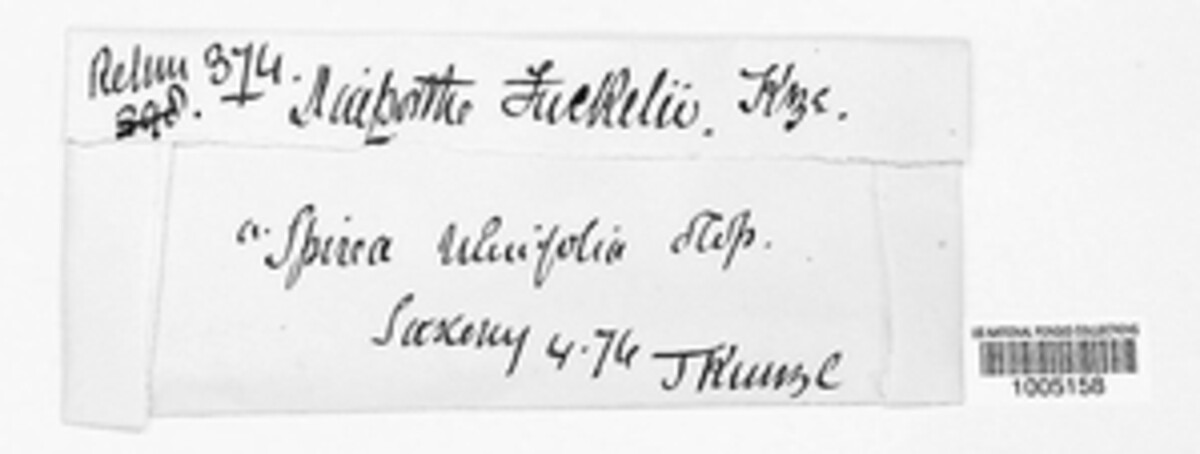 Rehm 374. Diaporthe Fuckelii. Kze.
298.
a. Spirea ulmifolia Scop.
Saxony 4.76 J Kunze
US NATIONAL FUNGUS COLLECTIONS
1005158